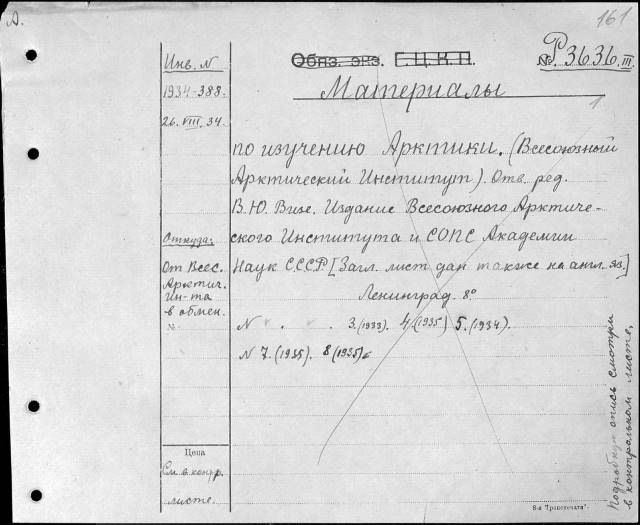 А.
161
Инв. N
1934-388.
26. VIII. 34.
Обяз. экз. Г.Ц.К.П.
№ Р.3636 III.
Материалы
1
по изучению Арктики. (Всесоюзный
Арктический Институт). Отв. ред.
В.Ю. Визе. Издание Всесоюзного Арктиче-
ского Института и СОПС Академии
Наук СССР [Загл. лист дан также на англ. яз.]
Ленинград. 8°
N . . . 3.(1933). 4(1935) 5.(1934).
N 7.(1935). 8(1935)
Откуда:
От Всес.
Арктич.
Ин-та
в обмен.
№
Цена
См. в контр.
листе
Подробную опись смотри
в контрольном листе.
8-я "Транспечать".